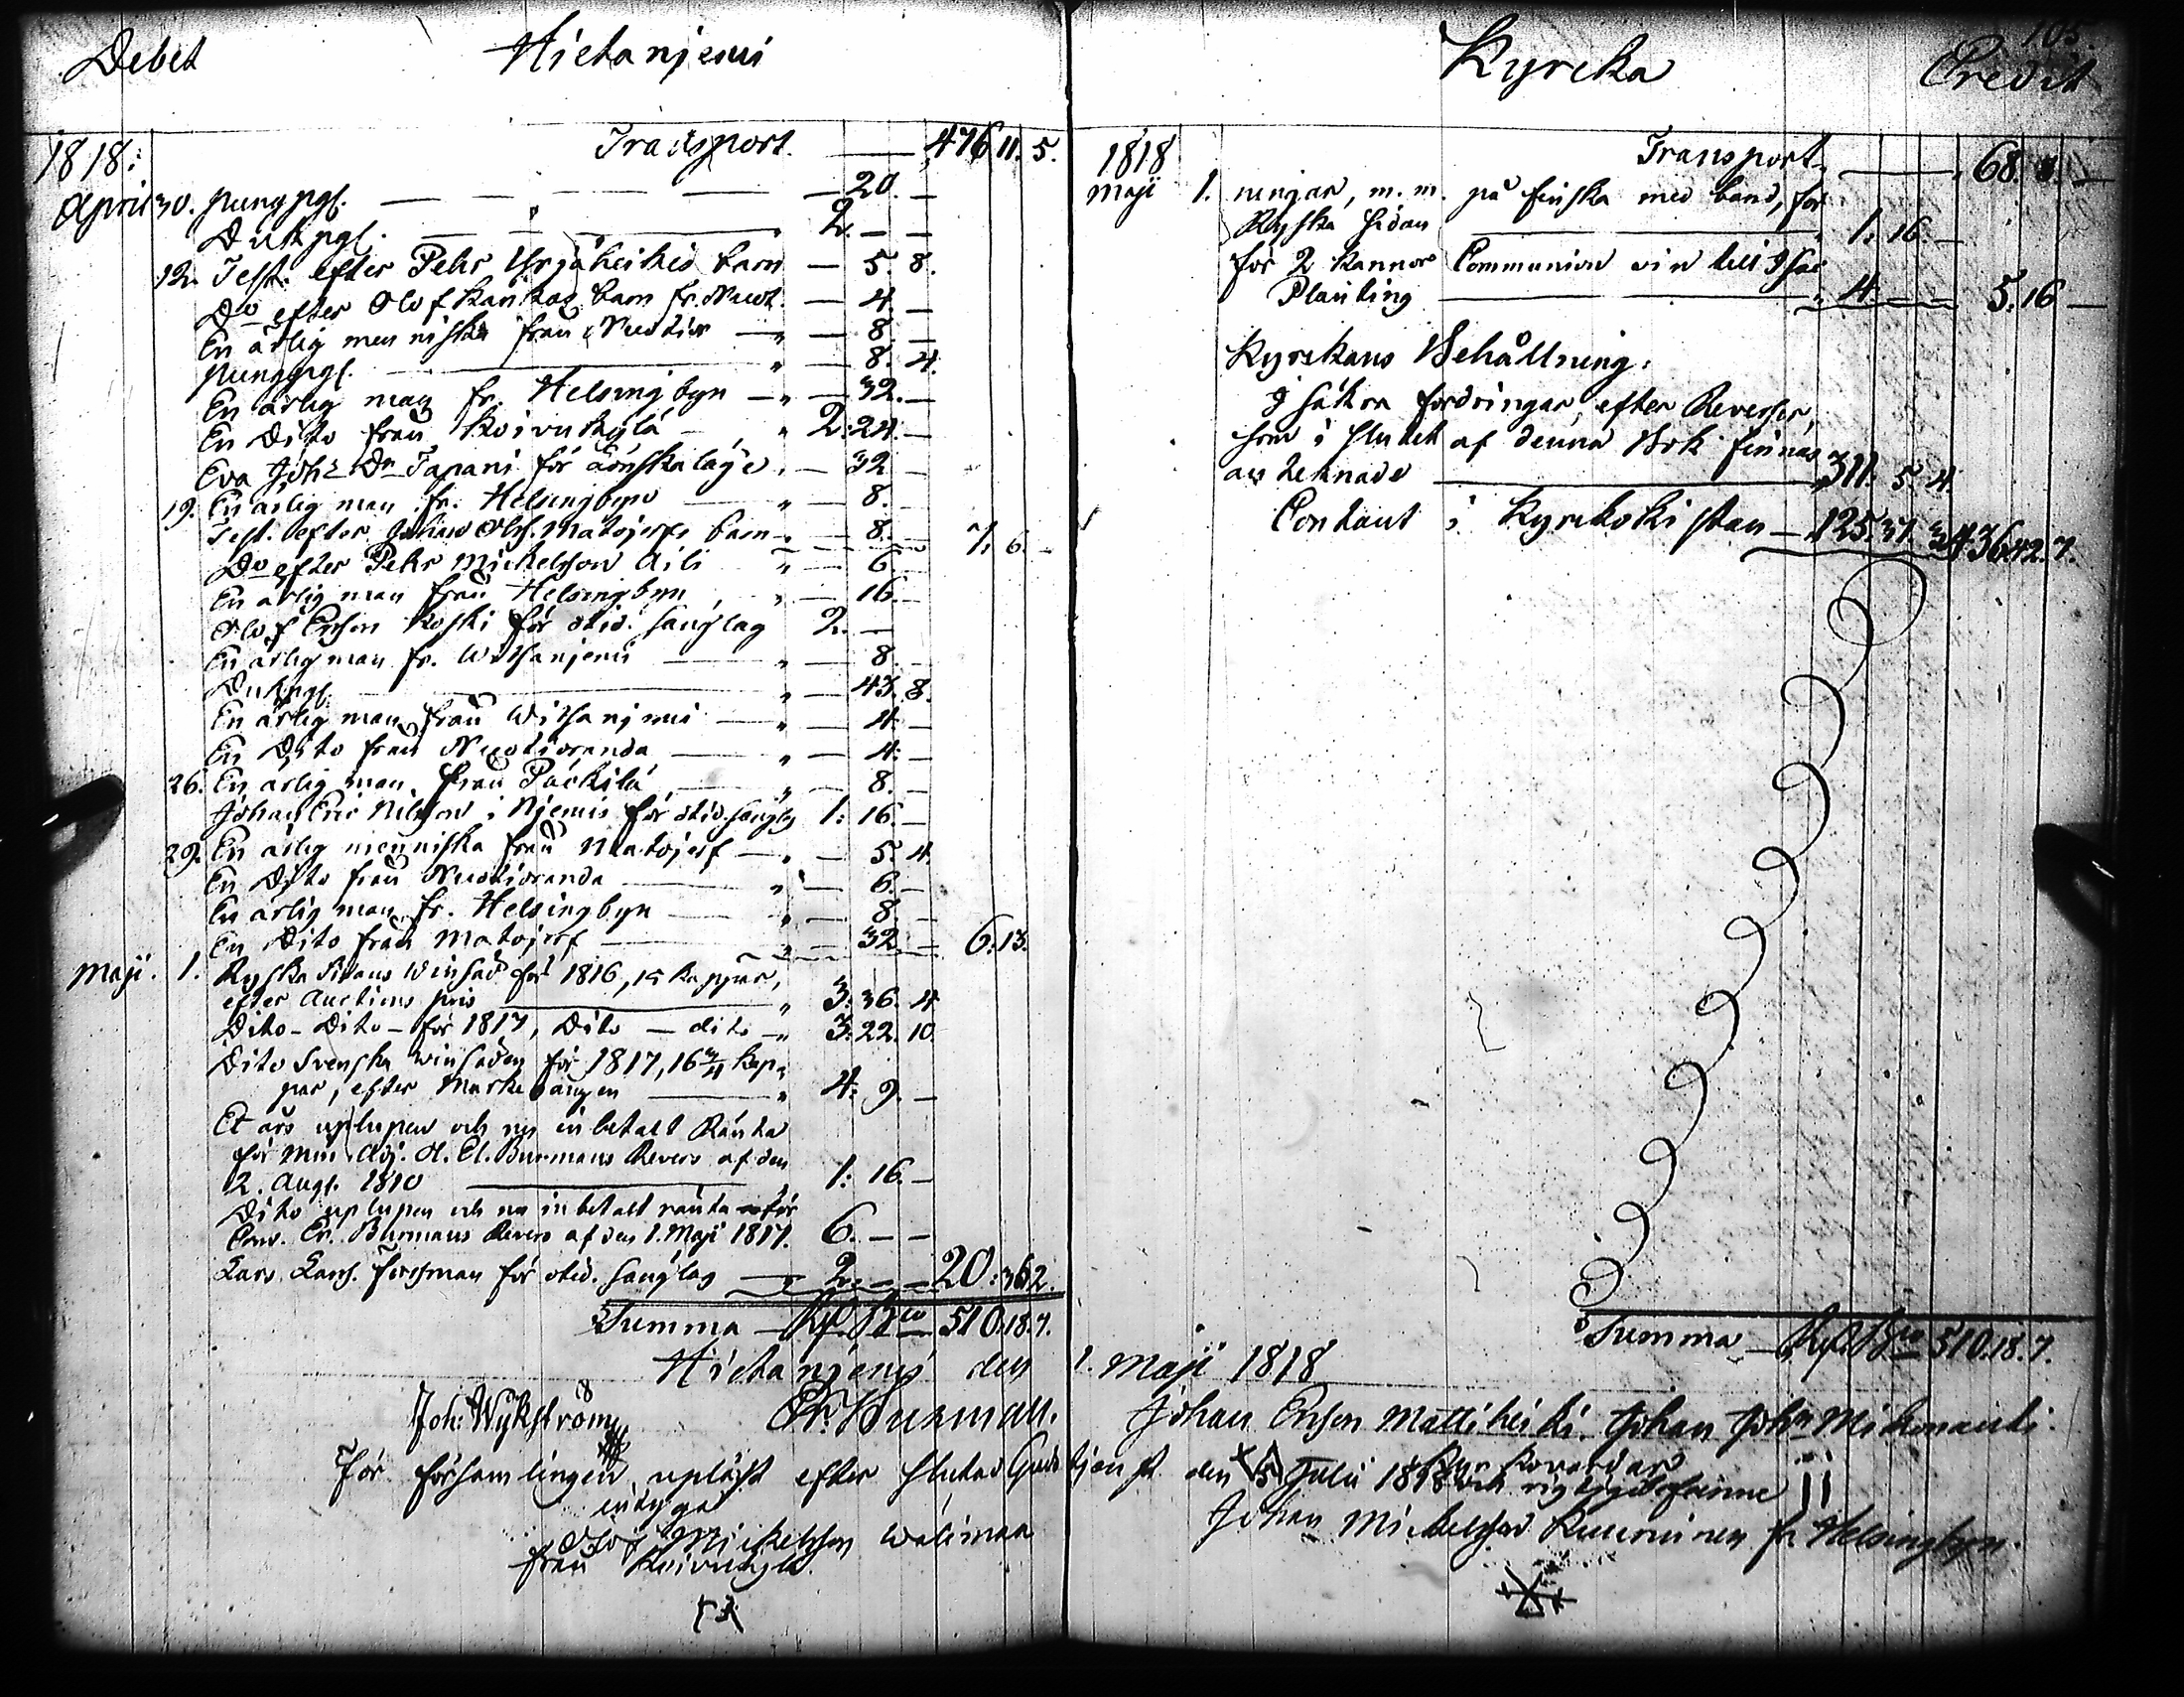 Debet Hietanjemi
1818: Transport. 476. 11. 5.
April 30. pungpgr. 20. —
Dukpgr. 2. — —
12. Test. efter Pehr Yrjäheikis barn — 5. 8.
Do efter Olof Kaukos barn fr. Nuot. — 4. —
En ärlig menniska från Nuotior — 8 —
pungpgr. 8. 4.
En ärlig man fr. Helsingbyn — 32. —
En Dito från Koivukylä 2: 24. —
Eva Johs Dr Tapani för — 32 —
19. En ärlig man fr. Helsingbyn 8. —
Test. efter Johan Ols. Matojerfs barn — 8. — 7. 6. —
Do efter Pehr Mickelsson Aili — 6 —
En ärlig man från Helsingbyn — 16. —
Olof Ersson Koski för otid. sänglag 2. —
En ärlig man fr. Witsanjemi — 8. —
Dukpgr. — 43. 8.
En ärlig man från Witsanjemi — 4. —
En Dito från Nuotioranda — 4: —
26. En ärlig man från Päckilä 8. —
Johan Eric Nilsson i Njemis för otid. sänglg 1: 16. —
29. En ärlig menniska från Matojerf — 5. 4.
En Dito från Nuotioranda — 6. —
En ärlig man fr. Helsingbyn — 8. —
En Dito från Matojerf — 32. — 6. 13.
Maji. 1. Ryska sidans Winsäd för 1816, 15 kappar,
efter Auctions pris 3: 36. 4
Dito - Dito - för 1817, Dito — dito — 3: 22. 10.
Dito Svenska winsäden för 1817, 16 3/4 kap-
par, efter Markegången 4: 9. —
Et års uplupen och nu inbetalt Ränta
för Burmans Revers af den
12. Aug. 1810 1: 16. —
Dito uplupen och nu inbetalt ränta för
Er. Burmans Revers af den 1. Maji 1817. 6. — —
Lars Lars. för otid. sänglag 2: — — 20: 36 2.
Summa — Rd. Bco 510. 18. 7.
Hietanjemi den
Joh: Wykström Er. Burman.
För församlingen upläst efter slutad Guds
intyga
Olof Mickelsson Walimaa
från Koivukylä.
105.
Kyrcka Credit
1818 Transport. 68. 8. —
Maji 1. ningar, m. m. på finska med band, för
Ryska sidan 1: 16. —
för 2 kannor Communion vin
Planting 4 5. 16 —
Kyrckans Behållning:
I säkra fordringar efter Reverser,
som i slutet af denna Bok finnas
antecknade 311. 5. 4.
Contant i Kyrckokistan — 125. 37. 3 436. 42. 7.
Summa — Rd. Bco 510. 18. 7.
1. Maji 1818
Johan Ersson Mattiheiki. Johan Johs
Kyrkovärdar
tjenst den 5 Julii 1818 och rigtigt befunne
Johan Mickelsson fr. Helsingbyn.